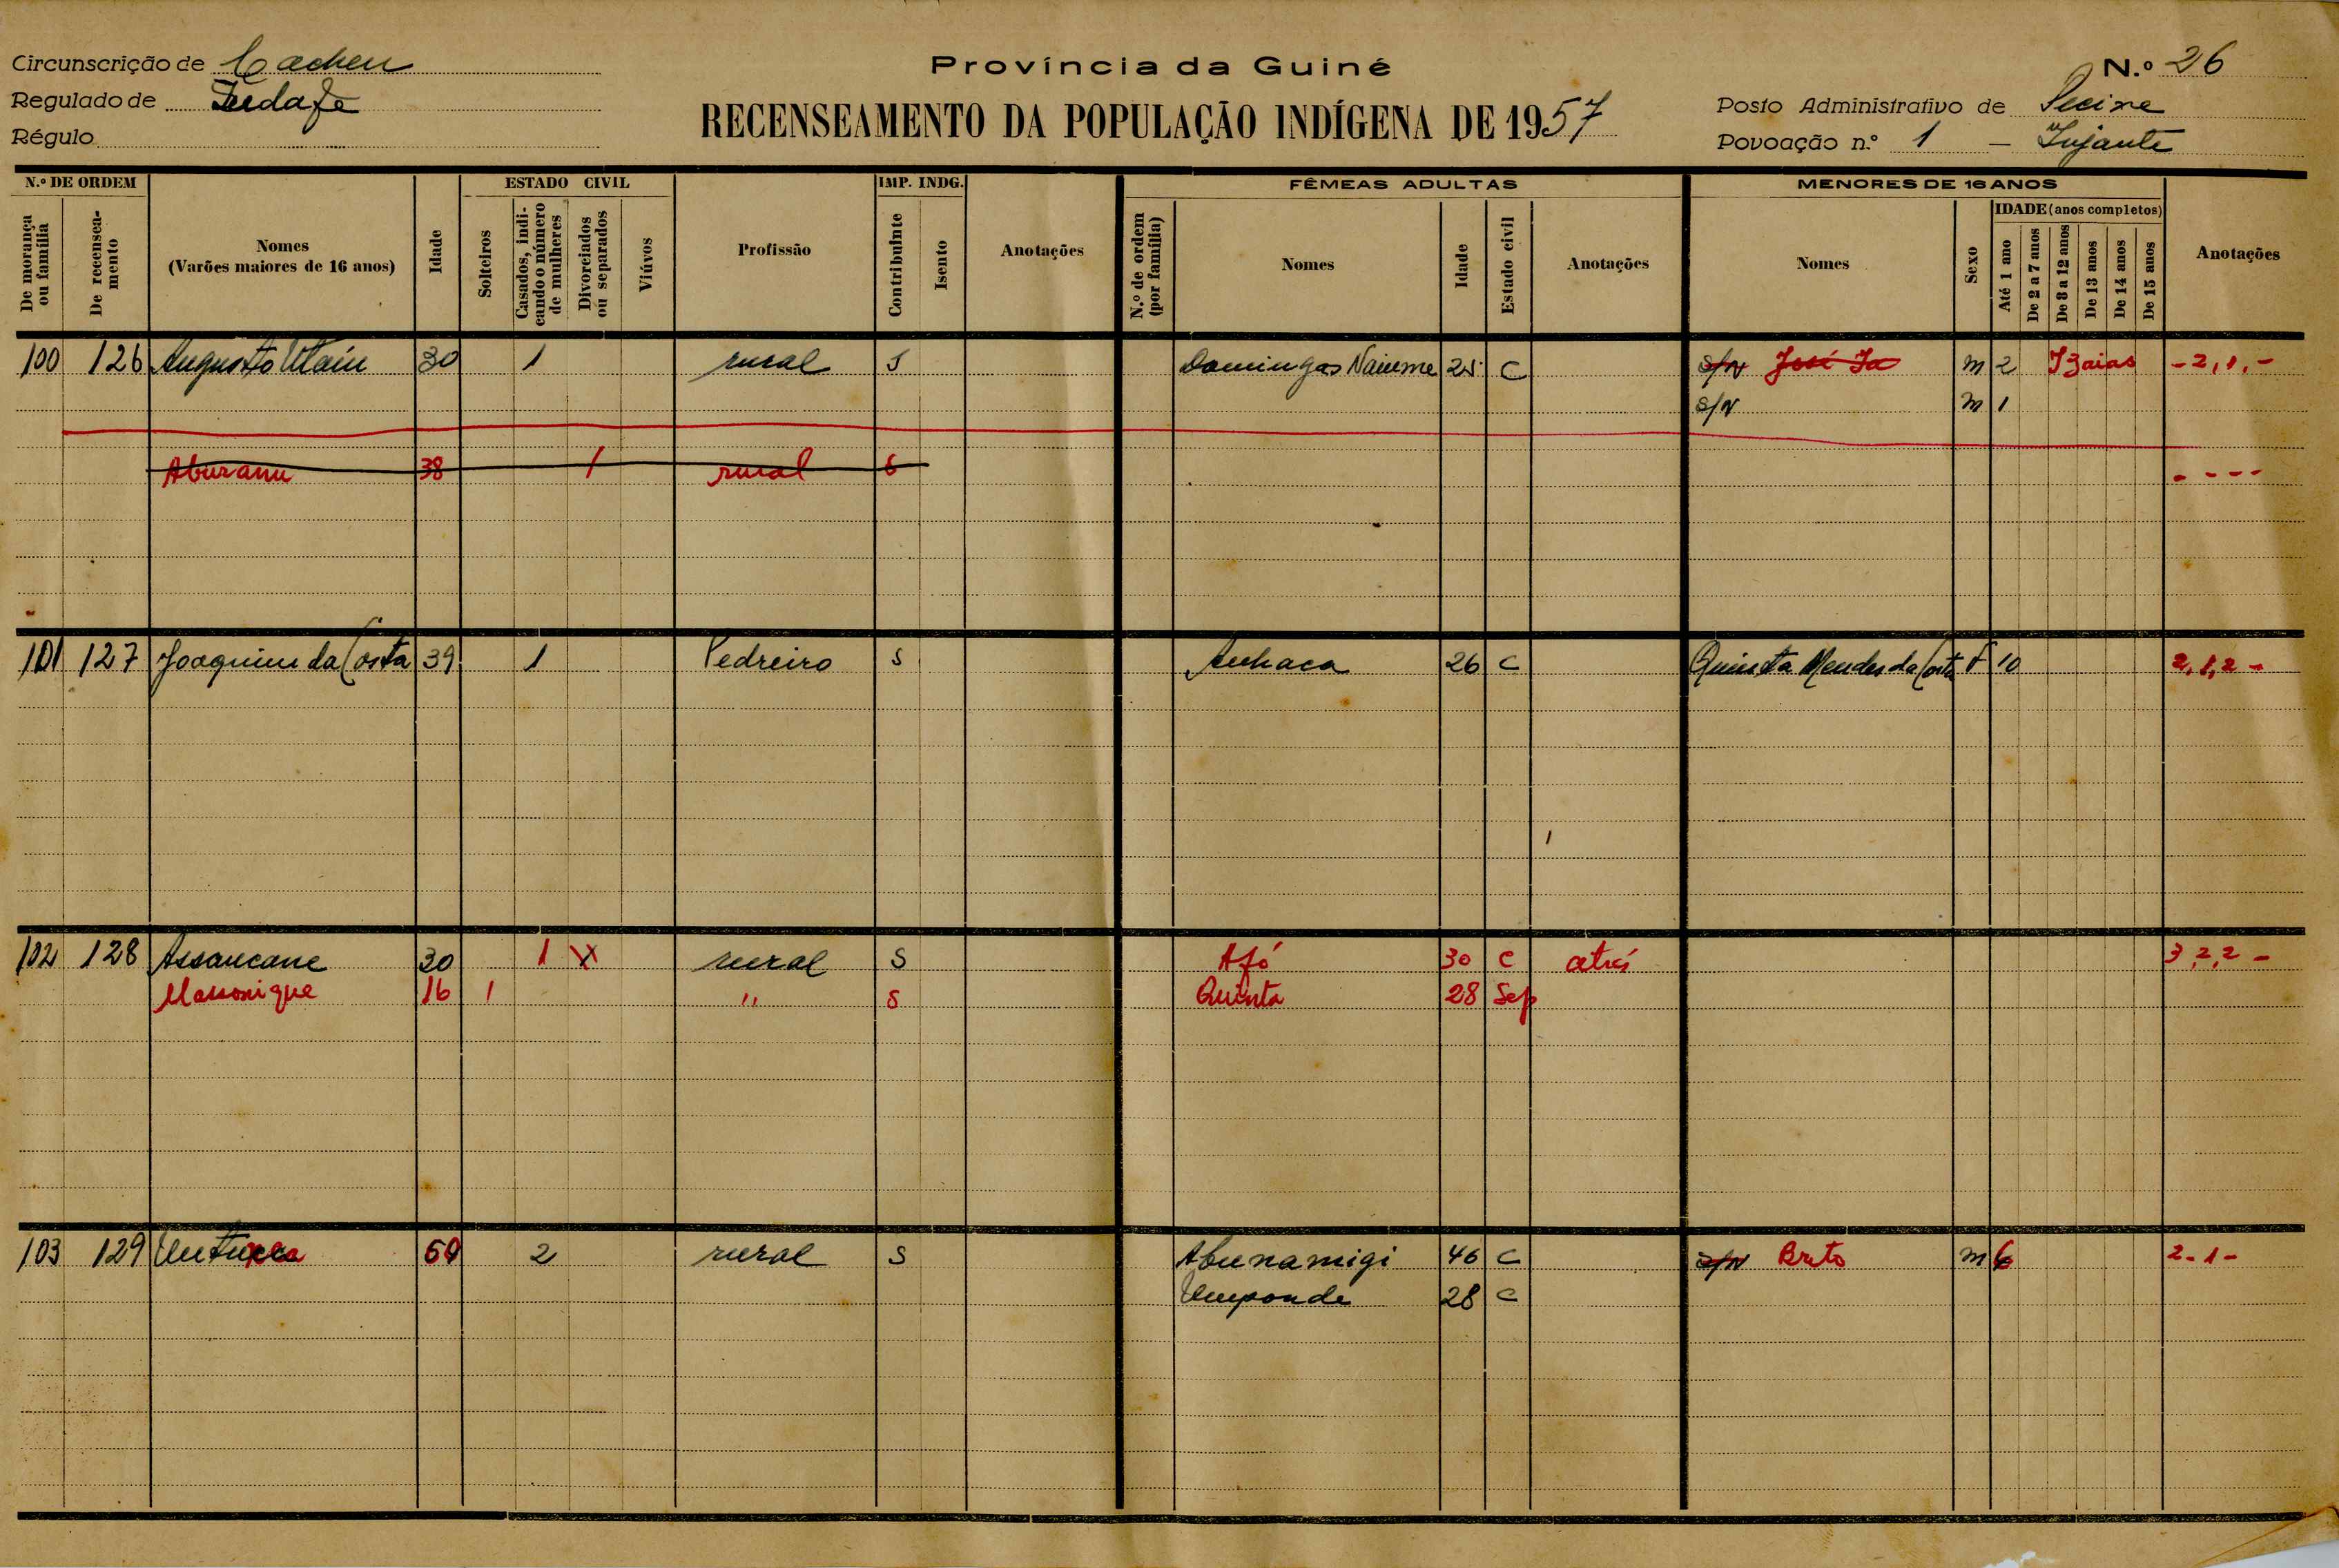 Circunscrição de Cacheu
Regulado de
Régulo
Província da Guiné
RECENSEAMENTO DA POPULAÇÃO INDÍGENA DE 1957
N.º 26
Posto Administrativo de
Povoação n.º 1 —
N.º DE ORDEM
De morança ou família
De recenseamento
Nomes
(Varões maiores de 16 anos)
Idade
ESTADO CIVIL
Solteiros
Casados, indicando o número de mulheres
Divorciados ou separados
Viúvos
Profissão
IMP. INDG.
Contribuinte
Isento
Anotações
FÊMEAS ADULTAS
N.º de ordem (por família)
Nomes
Idade
Estado civil
Anotações
MENORES DE 16 ANOS
Nomes
Sexo
IDADE (anos completos)
Até 1 ano
De 2 a 7 anos
De 8 a 12 anos
De 13 anos
De 14 anos
De 15 anos
Anotações
100 126 Augusto 30 1 rural S Domingas Naieme 25 C S/N José m 2 Izaias - 2, 1, -
S/N m 1
Aburanu 38 1 rural S - - - -
101 127 Joaquim da Costa 39 1 Pedreiro S Anhaca 26 C Quinta Mendes da Costa F 10 2, 1, 2 -
102 128 Assancane 30 1 rural S Afó 30 C 3, 2, 2 -
16 1 " S Quinta 28 Sep
103 129 2 rural S Abunamigi 46 C S/N Brito m 6 2 - 1 -
Umponde 28 C